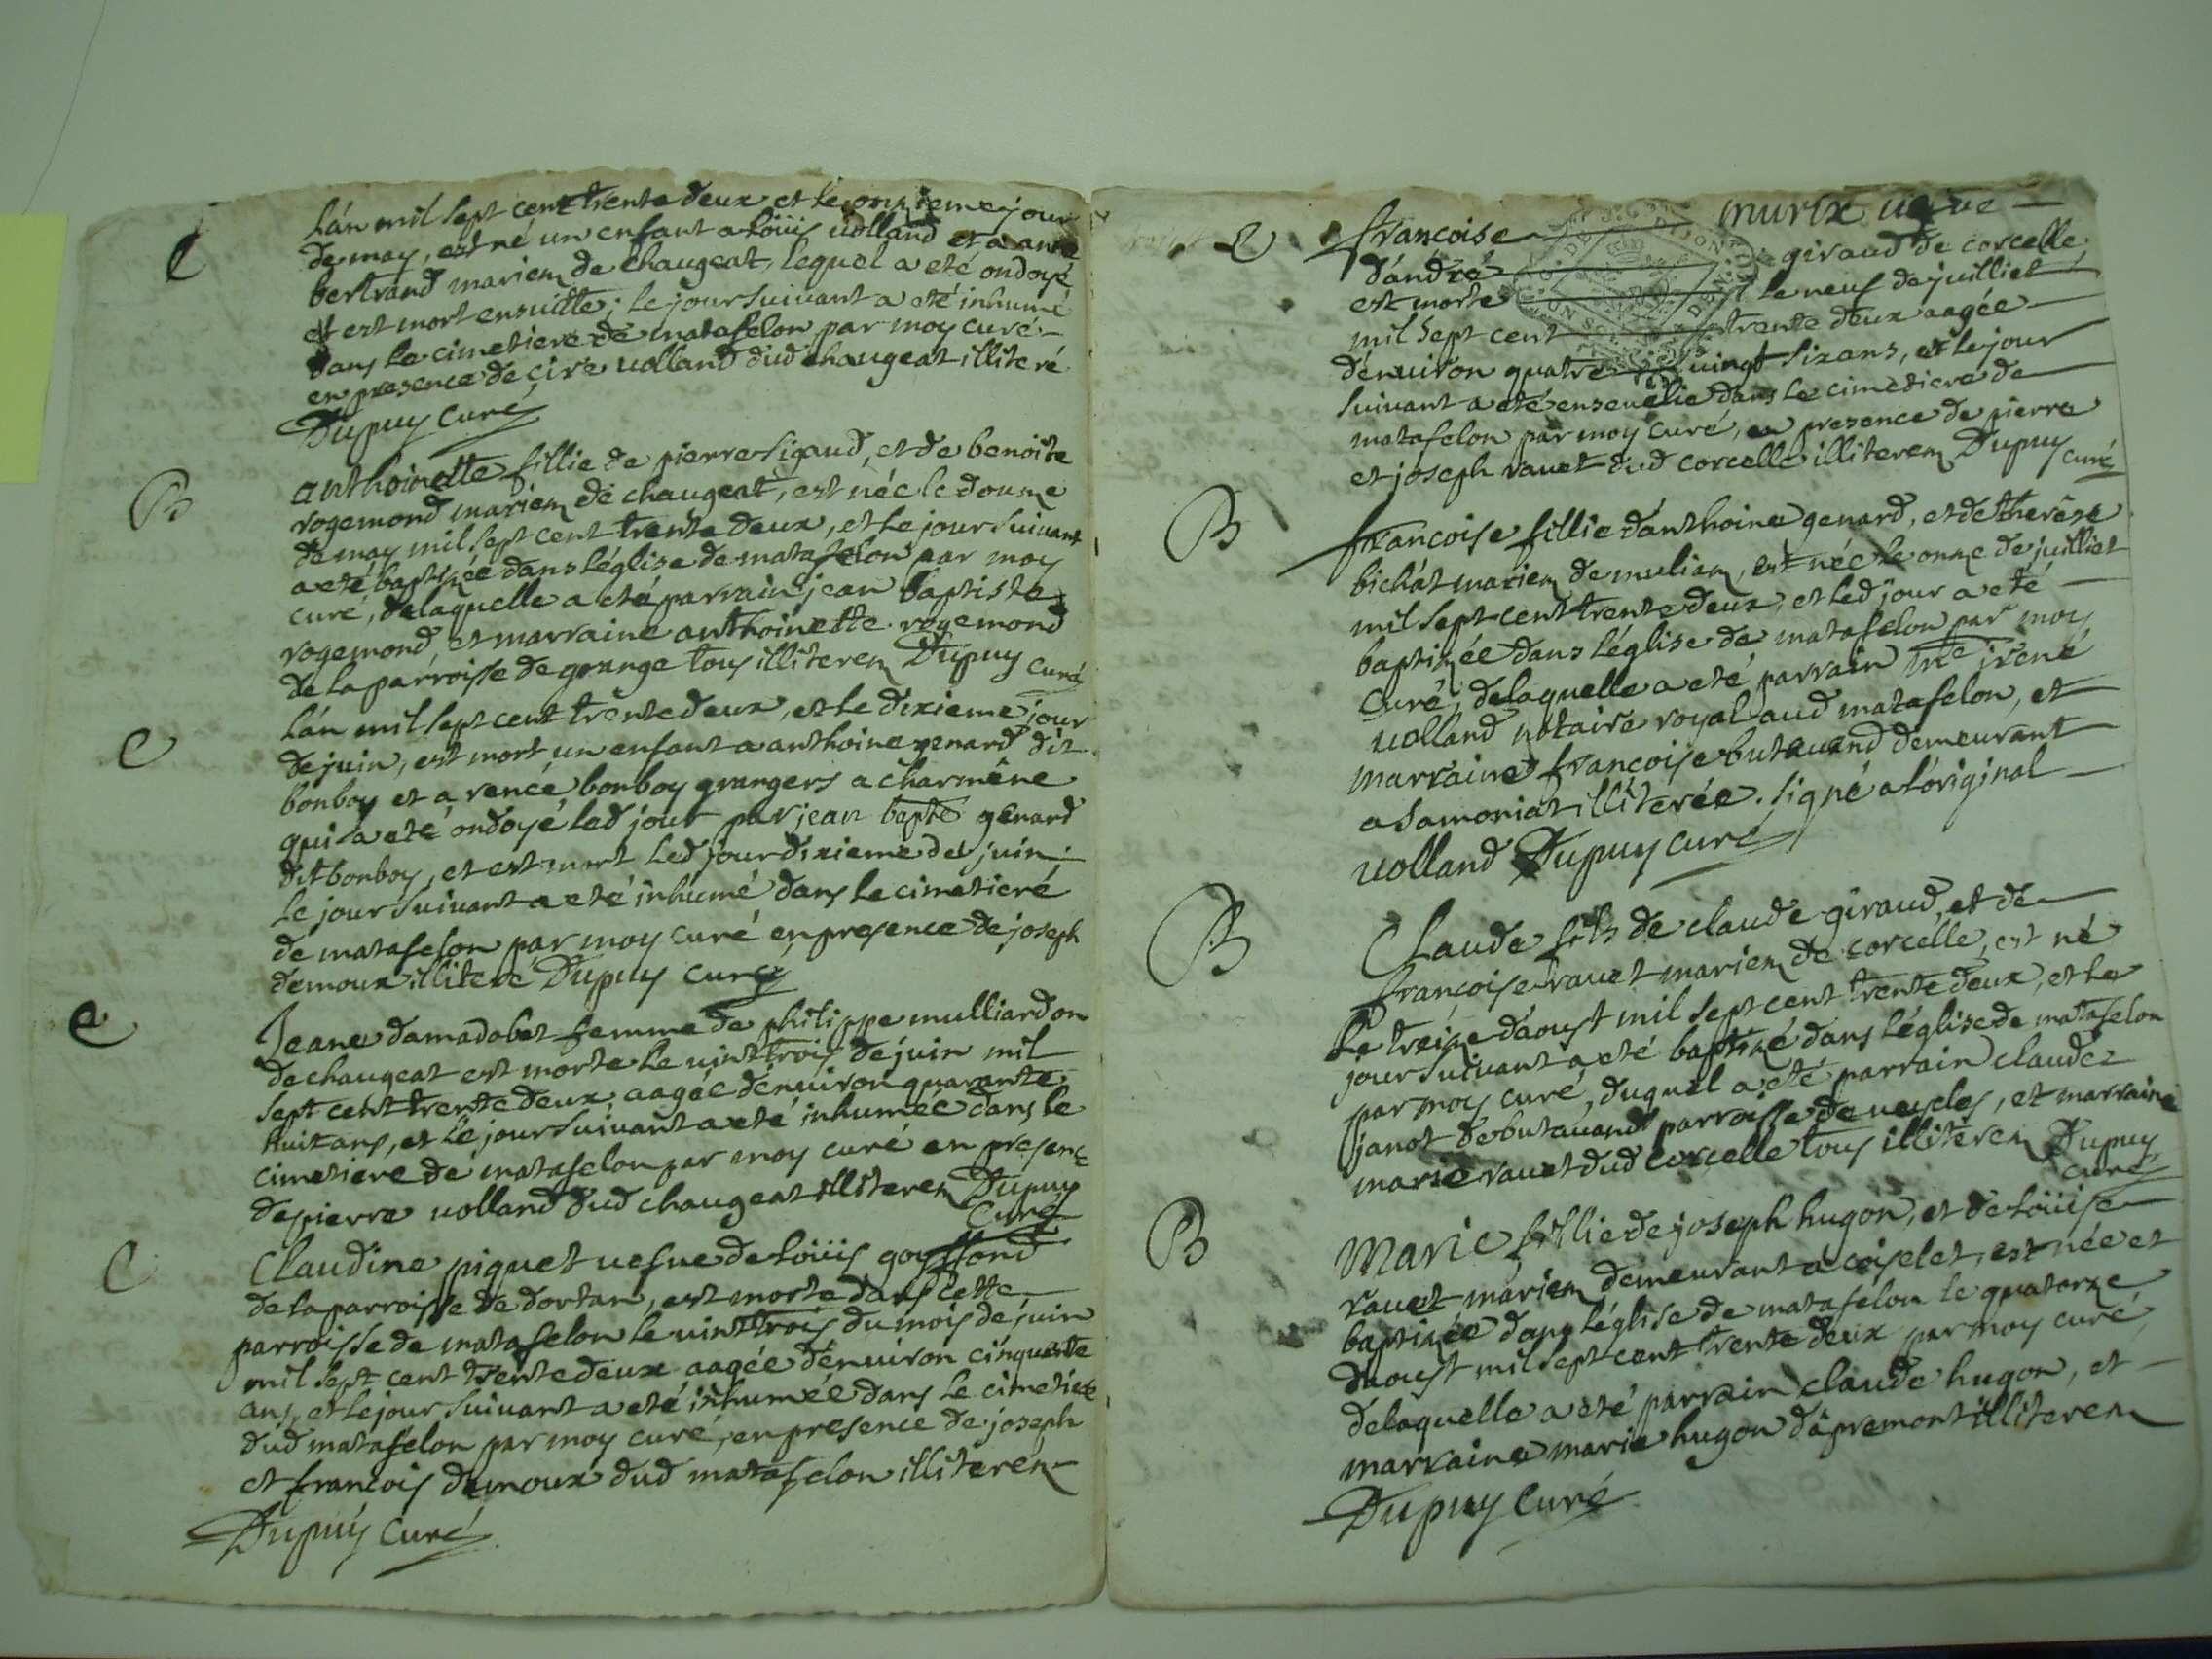 e
lán mil sept cent trente deux et le onzieme jour
de may, est né un enfant a loüis uolland et a anne
bertrand mariez de chaugeat, lequel a eté ondoyé
et est mort ensuitte; le jour suiuant a eté inhumé
dans le cimetiere de matafelon par moy curé
en presence de uolland dud chaugeat illiteré
Dupuy curé
B
anthoinette fillie de pierre sigaud, et de benoite
rogemond mariez de chaugeat, est née le douze
de may mil sept cent trente deux, et le jour suiuant
a eté baptizée dans léglise de matafelon par moy
curé, delaquelle a eté parrain jean baptiste
rogemond, et marraine anthoinette rogemond
de la parroisse de grange tous illiterez Dupuy curé
e
lán mil sept cent trente deux, et le dixieme jour
de juin, est mort un enfant a anthoine genard dit
bonboy et a renée bonboy grangers a charmêne
qui a eté ondoyé led jour par jean bapte genard
dit bonboy, et est mort led jour dixieme de juin
le jour suiuant a eté inhumé dans le cimetieré
de matafelon par moy curé en presence de joseph
demoux illiteré Dupuy curé
e
Jeane damadobet femme de philippe mulliardon
de chaugeat est morte le uint trois de juin mil
sept cent trente deux aagée dénuiron quarante
huit ans, et le jour suiuant a eté inhumée dans le
cimetiere de matafelon par moy curé en presence
de pierre uolland dud chaugeat illiterez Dupuy
curé
e
Claudine piquet uefue de loüis gouffond
de la parroisse de dortan, est morte dans cette
parroisse de matafelon le uint trois du mois de juin
mil sept cent trente deux aagée dénuiron cinquante
ans, et le jour suiuant a eté inhumée dans le cimetiere
dud matafelon par moy curé, en presence de joseph
et francois demoux dud matafelon illiterez
Dupuy curé
e
francoise murix uefue
dándré giraud de corcelle
est morte le neuf de juilliet
mil sept cent trente deux aagée
dénuiron quatre uingt six ans, et le jour
suiuant a eté enseuelie dans le cimetiere de
matafelon par moy curé, en presence de pierre
et joseph rauet dud corcelle illiterez Dupuy curé
B
francoise fillie dánthoine genard, et de therêse
bichát mariez de muliaz, est née le onze de juilliet
mil sept cent trente deux, et led jour a eté
baptizée dans léglise de matafelon par moy
curé, delaquelle a eté parrain me irené
uolland notaire royal aud matafelon, et
marraine francoise butauand demeurant
a samoniat illiterée. signé a lóriginal
uolland Dupuy curé
B
Claude fils de claude giraud, et de
francoise rauet mariez de corcelle, est né
le treize dáoust mil sept cent trente deux, et le
jour suiuant a eté baptizé dans léglise de matafelon
par moy curé, duquel a eté parrain claude
janot de butauand parroisse de ueycles, et marraine
marie rauet dud corcelle tous illiterez Dupuy
curé
B
Marie fillie de joseph hugon, et de loüise
rauet mariez demeurant a coiselet, est née et
baptizée dans léglise de matafelon le quatorze
dáoust mil sept cent trente deux par moy curé,
delaquelle a eté parrain claude hugon, et
marraine marie hugon dápremont illiterez
Dupuy curé